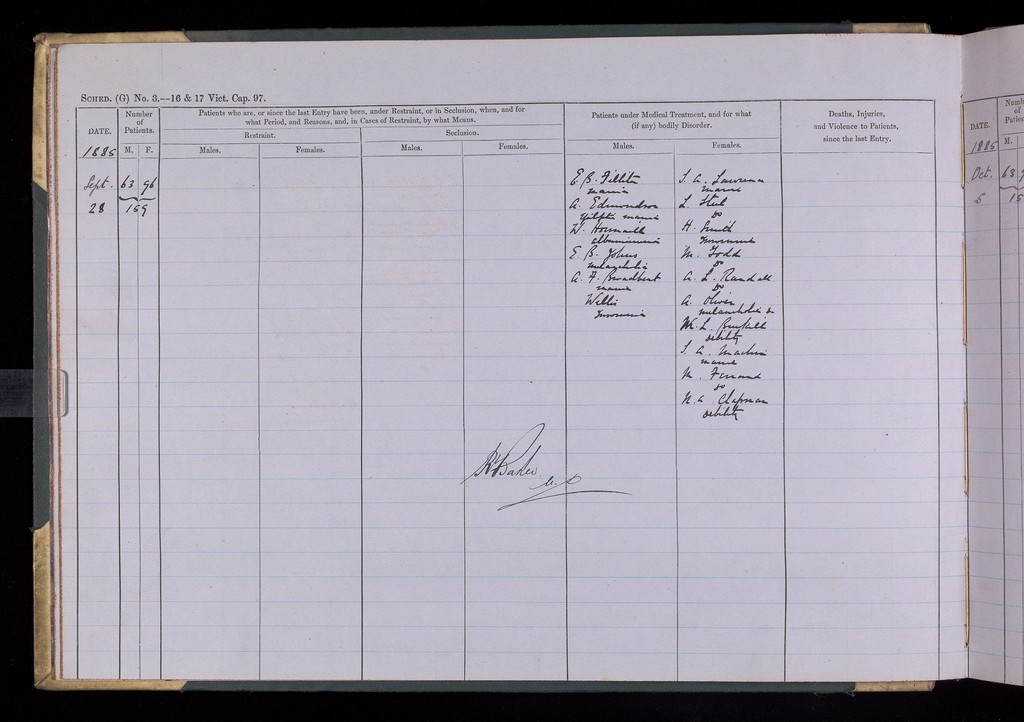 SCHED. (G) No. 3.—16 & 17 Vict. Cap. 97.
DATE.
1885
Number
of
Patients.
M. F.
Patients who are, or since the last Entry have been, under Restraint, or in Seclusion, when, and for
what Period, and Reasons, and, in Cases of Restraint, by what Means.
Restraint.
Males. Females.
Seclusion.
Males. Females.
Patients under Medical Treatment, and for what
(if any) bodily Disorder.
Males. Females.
Deaths, Injuries,
and Violence to Patients,
since the last Entry.
Sept. 63 96
28 159
E. B.
mania
A. Edmondson
mania
W.
albuminuria
E. B. Johns
melancholia
A. F. Broadbent
mania
Willis
Insomnia
S. A. Lawrence
mania
L.
Do
H. Smith
Insomnia
M. Todd
Do
A. L. Randall
Do
A. Oliver
melancholia
L.
debility
S. A. Machin
mania
M.
do
N. A. Chapman
debility
Baker
M.D
Numb
of
Patien
DATE.
1885
M.
Oct. 63 9
5 15